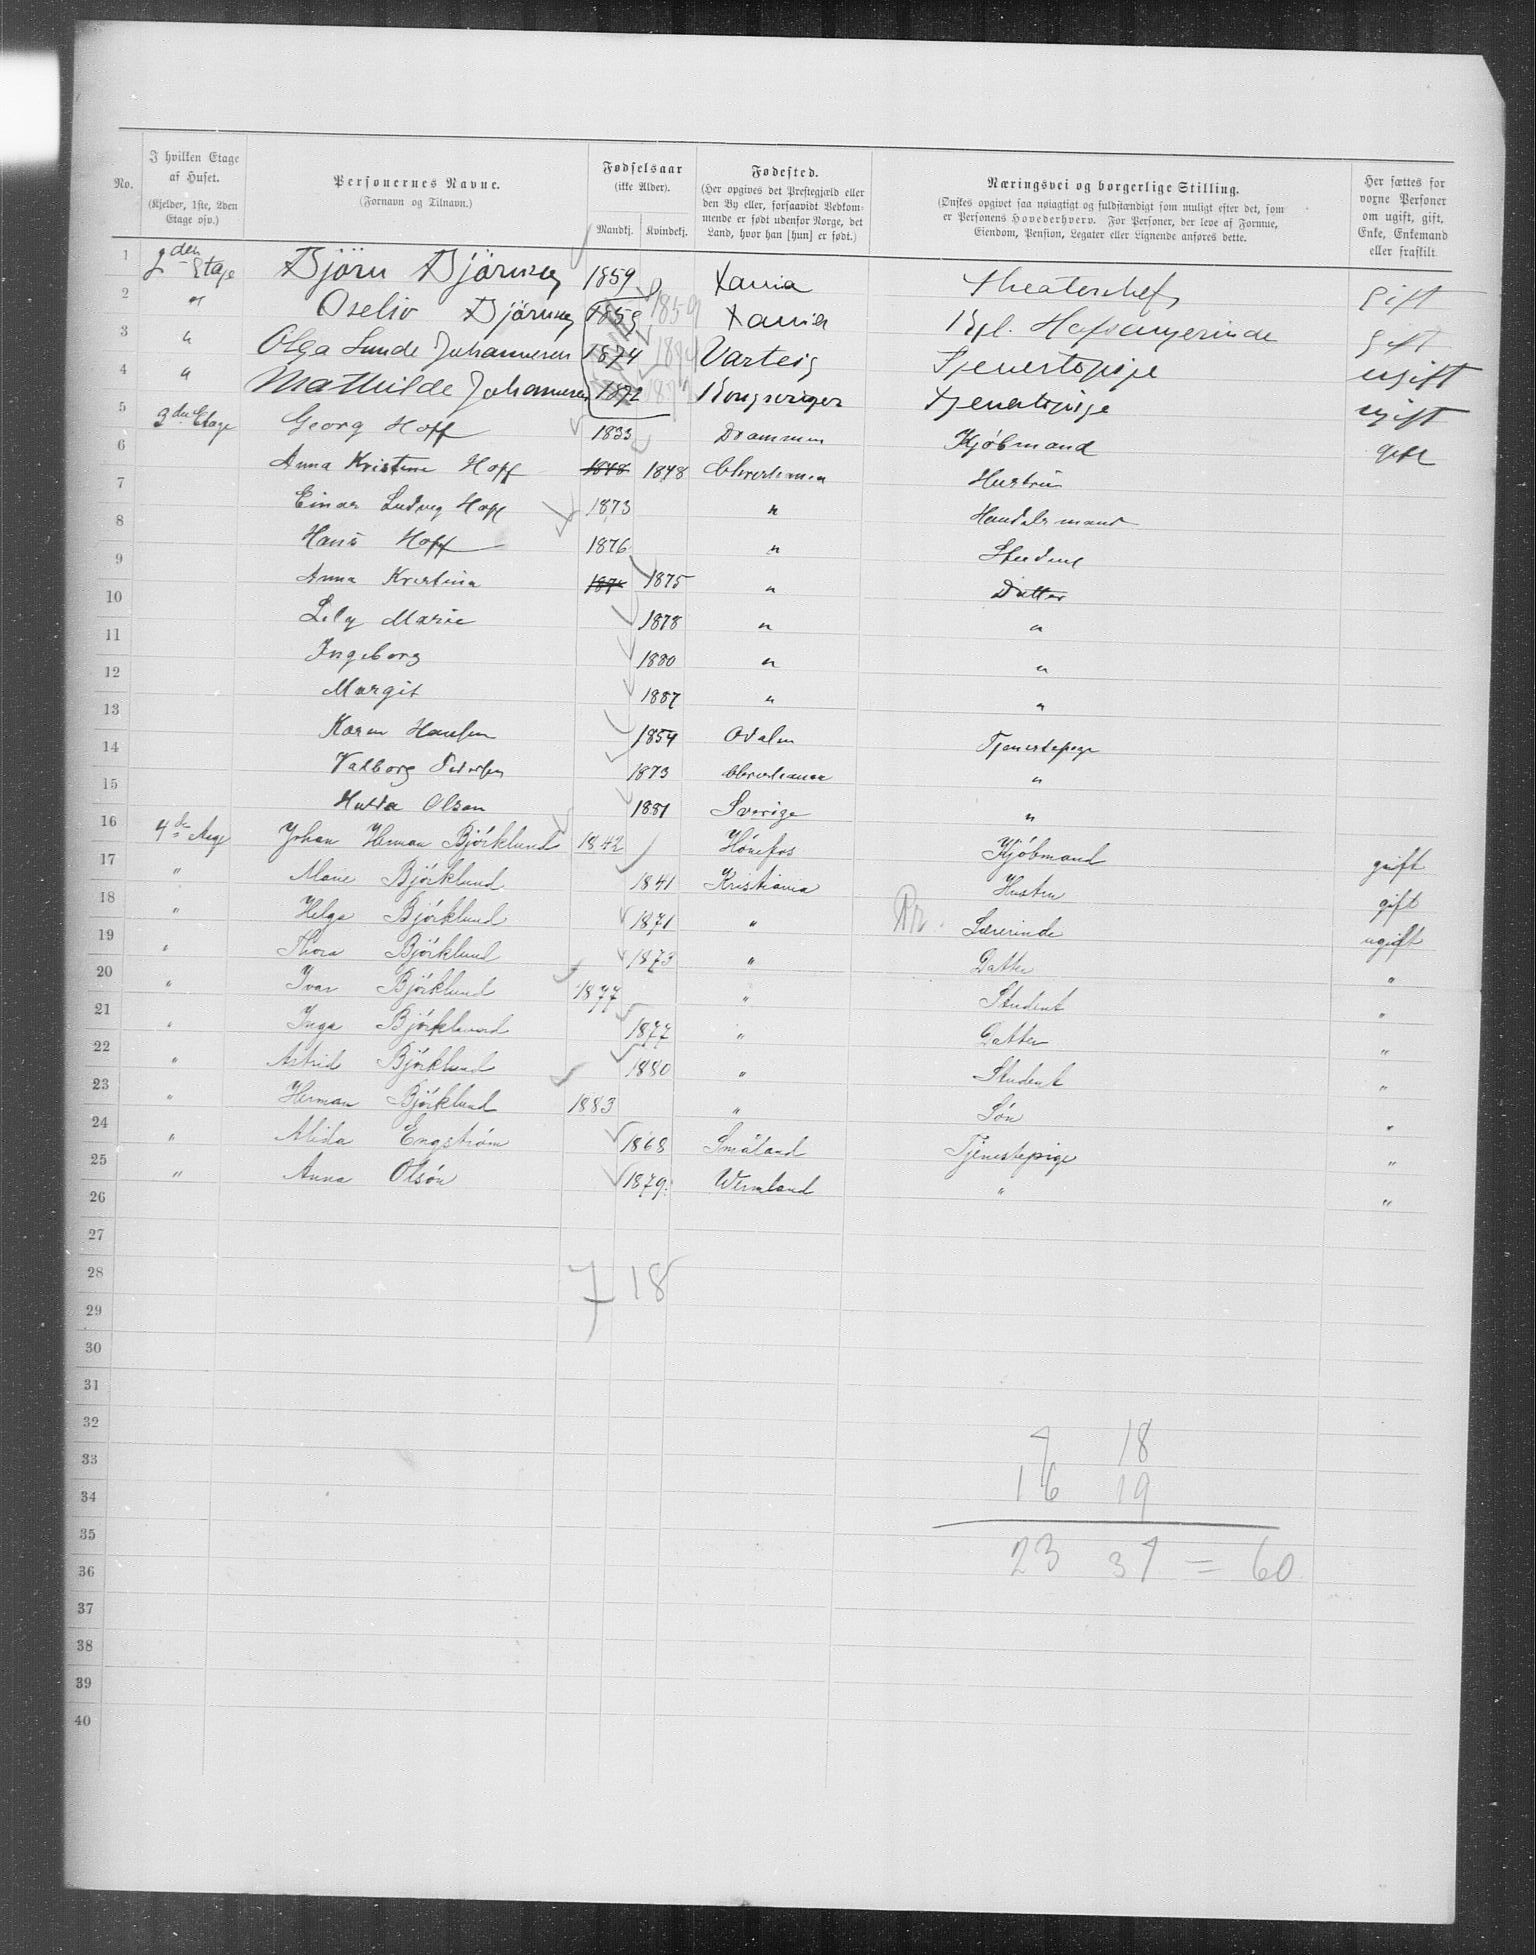 No.
I hvilken Etage af Huset. (Kjelder, 1ste, 2den Etage osv.)
Personernes Navne. (Fornavn og Tilnavn.)
Fødselsaar (ikke Alder). Mandkj. Kvindekj.
Fødested. (Her opgives det Præstegjæld eller den By eller, forsaavidt Vedkommende er født udenfor Norge, det Land, hvor han [hun] er født.)
Næringsvei og borgerlige Stilling. (Ønskes opgivet saa nøiagtigt og fuldstændigt som muligt efter det, som er Personens Hovederhverv. For Personer, der leve af Formue, Eiendom, Pension, Legater eller Lignende anføres dette.
Her sættes for voxne Personer om ugift, gift, Enke, Enkemand eller fraskilt.
1 2den Etage Björn Björnson 1859 Xania Theaterchef gift
2 " Björnson 1859 1859 Xania Kgl. Hofsangerinde gift
3 " Olga Lunde Johannesen 1874 1874 Varteig Tjenestepige ugift
4 " Mathilde Johannesen 1872 1872 Kongsvinger Tjenestepige ugift
5 3die Etage Georg Hoff 1833 Drammen Kjøbmand gift
6 Anna Kristine Hoff 1848 1848 Christiania Hustru
7 Einar Ludvig Hoff 1873 " Handelsmand
8 Hans Hoff 1876 " Student
9 Anna Kristina 1875 " Datter
10 Lily Marie 1878 " "
11 Ingeborg 1880 " "
12 Margit 1887 " "
13 Karen Hansen 1854 Odalen Tjenestepige
14 Valborg Pedersen 1873 Christiania "
15 Hulda Olson 1881 Sverige "
16 4de Etage Johan Herman Björklund 1842 Hönefos Kjöbmand gift
17 " Marie Björklund 1841 Kristiania Hustru gift
18 " Helga Björklund 1871 " Pr. Lærerinde ugift
19 " Thora Björklund 1873 " Datter "
20 " Ivar Björklund 1877 " Student "
21 " Inga Björklund 1877 " Datter "
22 " Astrid Björklund 1880 " Student "
23 " Herman Björklund 1883 " Sön "
24 " Alida Engström 1868 Småland Tjenestepige "
25 " Anna Olsön 1879 Wermland " "
26
27
28 7 18
29
30
31
32
33 7 18
34 16 19
35
36 23 37 = 60
37
38
39
40